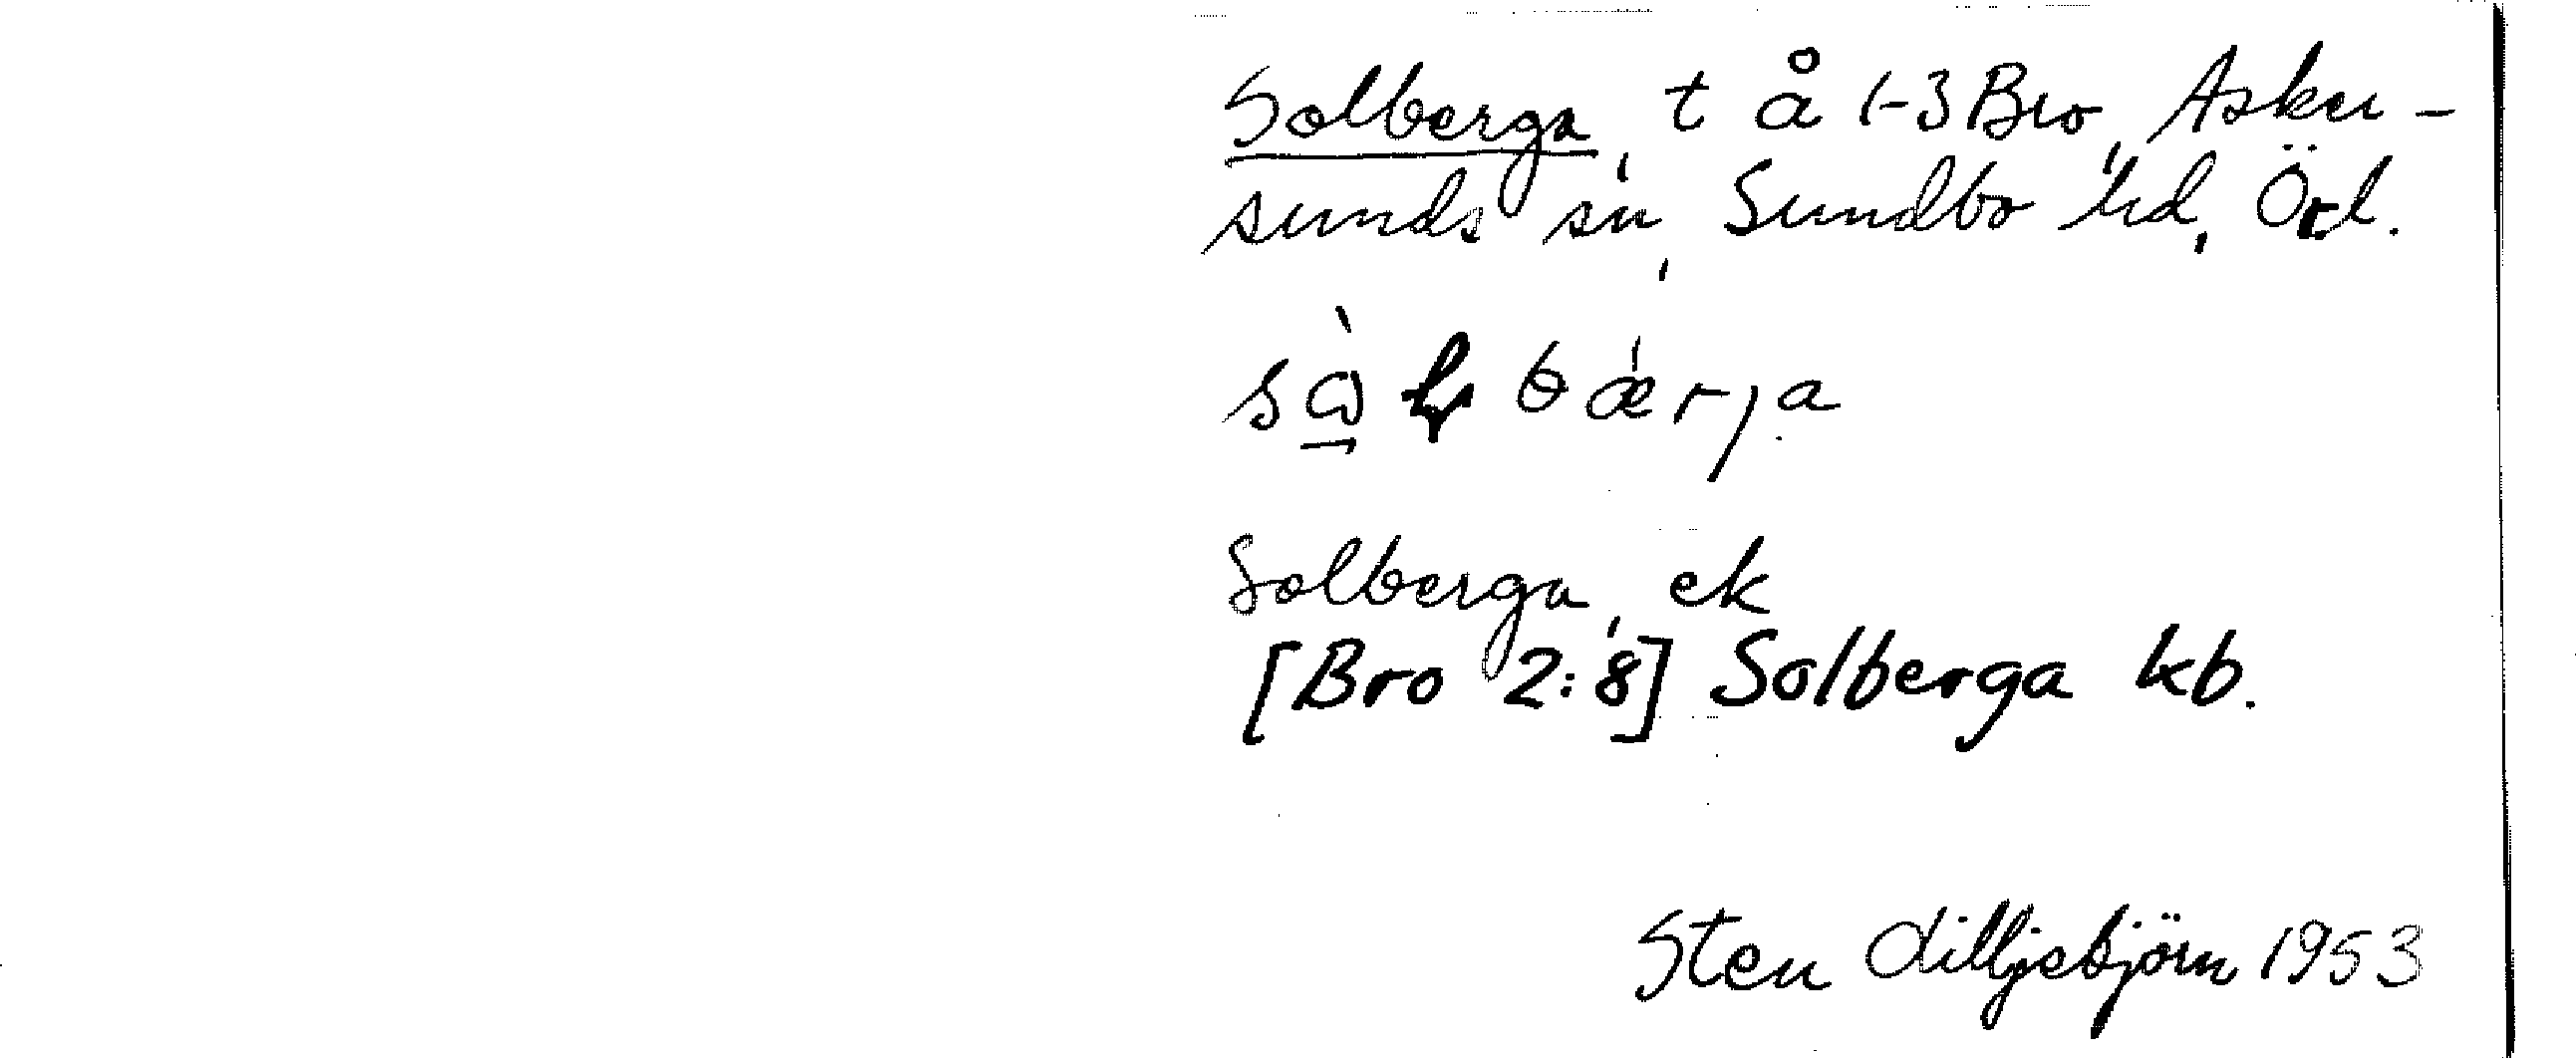 Solberga, t å 1-3 Bro, Asker-
sunds sn, Sundbo hd, Örl.
Solberga, ek
[Bro 2:8] Solberga kb.
Sten Lilljebjörn 1953